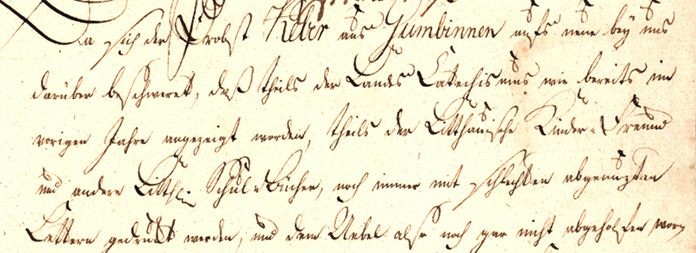 Da sich der Probst Keber aus Gumbinnen aufs neue bey uns
darüber beschweret, daß theils der Landes Catechismus wie bereits im
vorigen Jahre angezeigt worden, theils der Litthauische Kinder-Freund
und andere Litth. Schul-Bücher, noch immer mit schlechten abgenuzten
Lettern gedruckt werden, und dem Uebel also noch gar nicht abgeholfen wor-